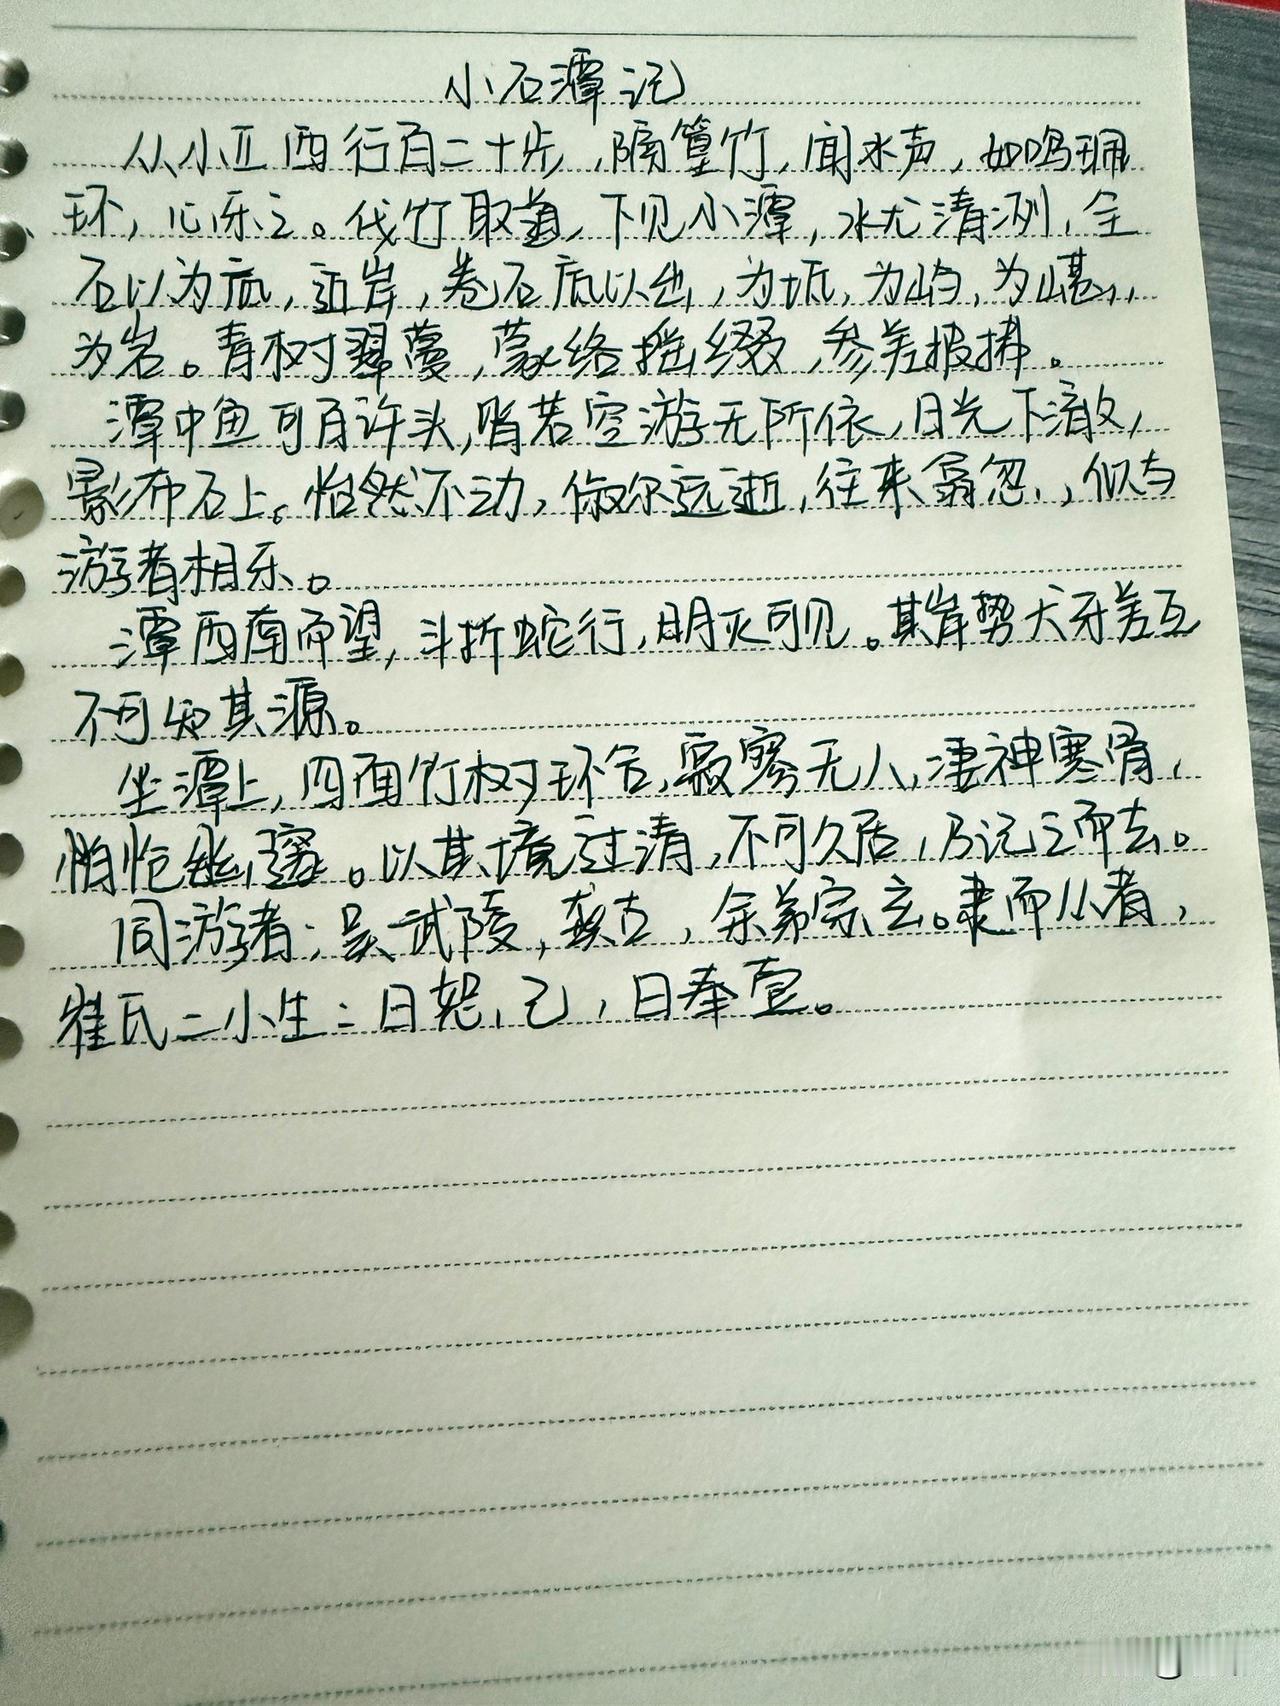 小石潭记
从小丘西行百二十步,隔篁竹,闻水声,如鸣珮
环,心乐之。伐竹取道,下见小潭,水尤清冽,全
石以为底,近岸,卷石底以出,为坻,为屿,为嵁,
为岩。青树翠蔓,蒙络摇缀,参差披拂。
潭中鱼可百许头,皆若空游无所依,日光下澈,
影布石上。怡然不动,俶尔远逝,往来翕忽,似与
游者相乐。
潭西南而望,斗折蛇行,明灭可见。其岸势犬牙差互
不可知其源。
坐潭上,四面竹树环合,寂寥无人,凄神寒骨,
悄怆幽邃。以其境过清,不可久居,乃记之而去。
同游者:吴武陵,龚古,余弟宗玄。隶而从者,
崔氏二小生:曰恕己,曰奉壹。